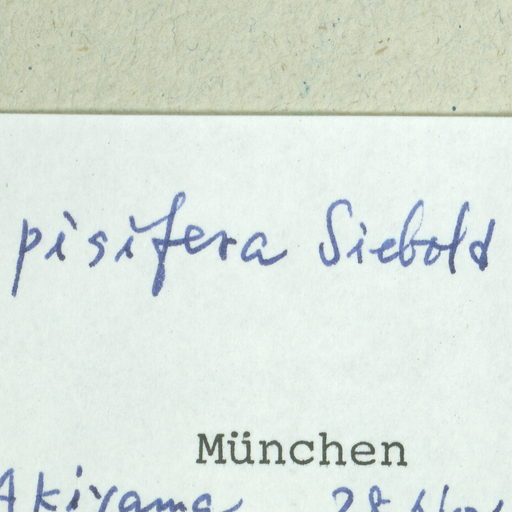 pisifera Siebold
München
Akiyama 28 Nov